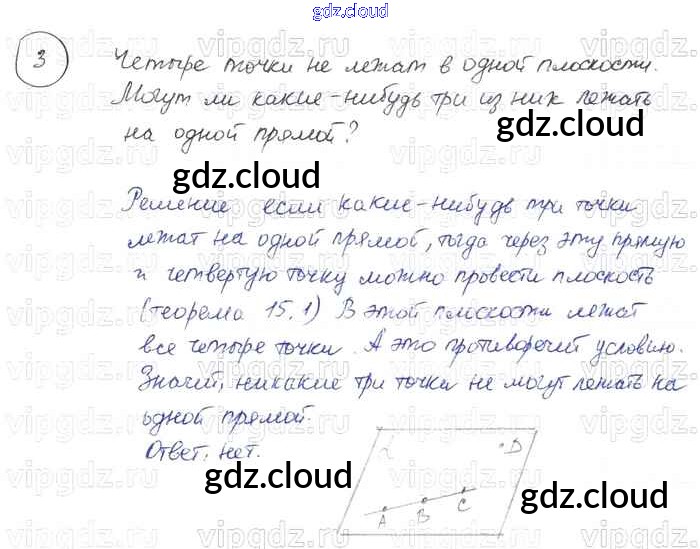 gdz.cloud
3 Четыре точки не лежат в одной плоскости.
Могут ли какие-нибудь три из них лежать
на одной прямой?
gdz.cloud
gdz.cloud
Решение если какие-нибудь три точки
лежат на одной прямой, тогда через эту прямую
и четвертую точку можно провести плоскость
(теорема 15.1) В этой плоскости лежат
gdz.cloud
gdz.cloud
все четыре точки. А это противоречий условию.
Значит, никакие три точки не могут лежать на
одной прямой.
Ответ: нет.
α D
gdz.cloud
gdz.cloud
A B C